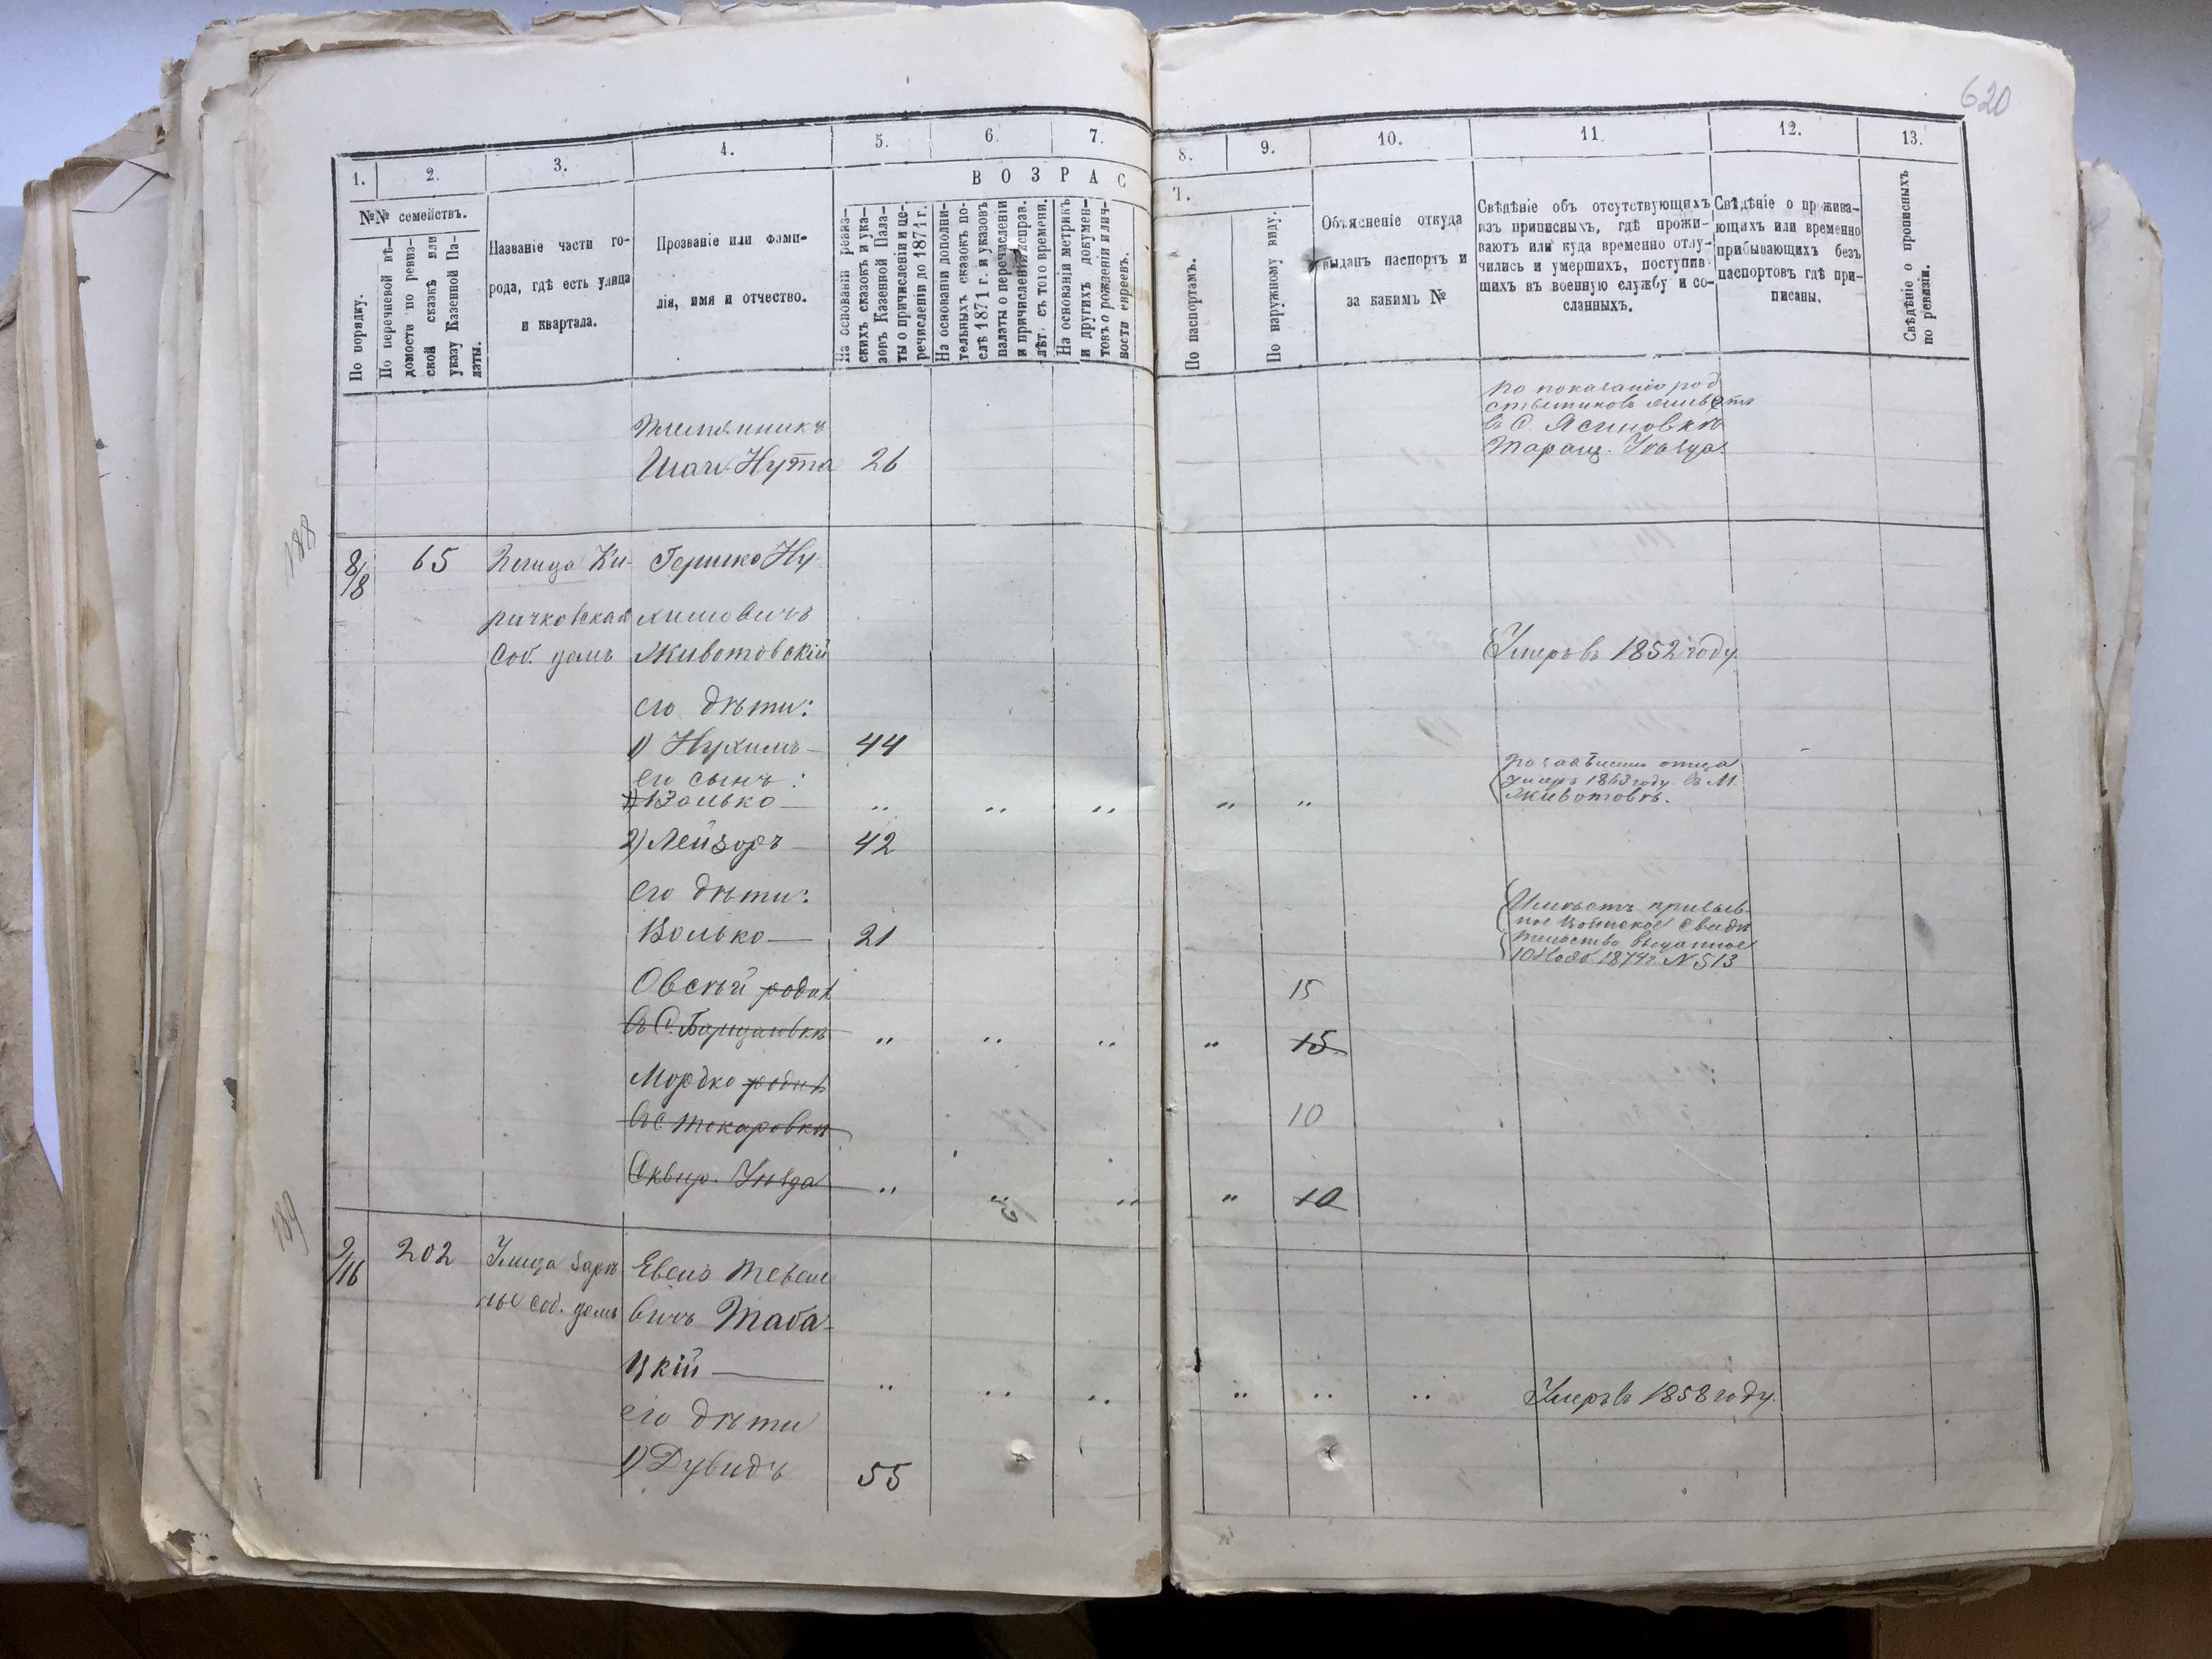 620
1.
2.
3.
4.
5.
6.
7.
8.
9.
10.
11
12.
13.
ВОЗРАС
Т.
№№ семействъ.
По порядку.
По перечневой вѣ-
домости по ревиз-
ской сказкѣ или
указу Казенной Па-
латы.
Названіе части го-
рода, гдѣ есть улица
и квартала.
Прозваніе или фами-
лія, имя и отчество.
На основаніи ревиз-
скихъ сказокъ и ука-
зовъ Казенной Пала-
ты о причисленіи и пе-
речисленіи до 1871 г.
На основаніи дополни-
тельныхъ сказокъ по-
слѣ 1871 г. и указовъ
палаты о перечисленіи
и причисленіи исправ.
лѣтъ съ того времени.
На основаніи метрикъ
и другихъ докумен-
товъ о рожденіи и лич-
ности евреевъ.
По паспортамъ.
По наружному виду.
Объясненіе откуда
выданъ паспортъ и
за какимъ №
Свѣдѣніе объ отсутствующихъ
изъ приписныхъ, гдѣ прожи-
ваютъ или куда временно отлу-
чились и умершихъ, поступив
щихъ въ военную службу и со-
сланныхъ.
Свѣдѣніе о прожива-
ющихъ или временно
прибывающихъ безъ
паспортовъ гдѣ при-
писаны.
Свѣдѣніе о прописныхъ
по ревизіи.
племянникъ
Шаи-Нута 26
по показанію род
ственниковъ живетъ
въ С. Ясиновкѣ
Таращ. Уѣзда.
188
8/18 65 Улица Ки- Гершко Ну-
ричковская химовичъ
Соб. домъ Животовскій Умеръ въ 1852 году.
его дѣти:
1) Нухимъ 44
его сынъ:
Волько " " " " "
по заявленію отца
умеръ 1863 году въ М.
Животовкѣ.
2) Лейзоръ 42
его дѣти:
Волько 21
Имѣетъ призыв-
ное Воинское Свидѣ
тельство выданное
10 Нояб. 1874 г. N 513
Овсѣй родил 15
въ С. " " " " 15
Мордко родил
въ С. Токаровкѣ 10
Сквир. Уѣзда " " " " 10
189
9/16 202 Улица
соб. домъ
Евель Тевеле
вичъ Таба-
цкій " " " " " " Умеръ въ 1858 году.
его дѣти
1) Дувидъ 55